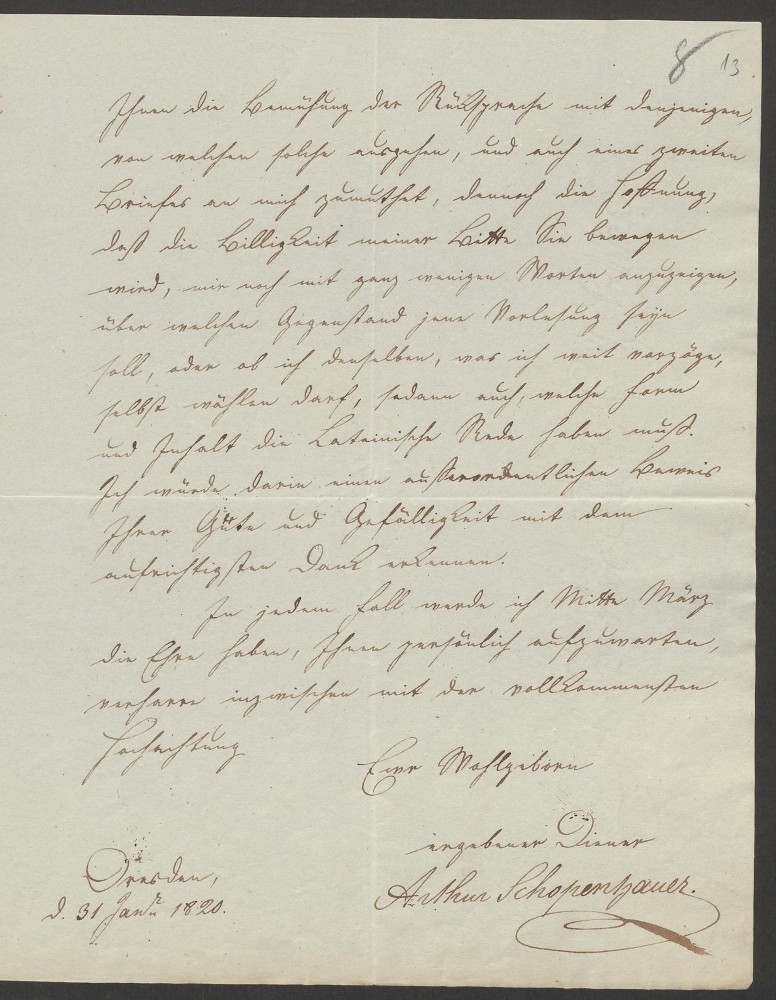 8 13
Ihnen die Bemühung der Rücksprache mit denjenigen,
von welchen solche ausgehen, und auch eines zweiten
Briefes an mich zumuthet, dennoch die Hoffnung,
daß die Billigkeit meiner Bitte Sie bewegen
wird, mir noch mit ganz wenigen Worten anzuzeigen,
über welchen Gegenstand jene Vorlesung seyn
soll, oder ob ich denselben, was ich weit vorzöge,
selbst wählen darf, sodann auch, welche Form
und Inhalt die Lateinische Rede haben muß.
Ich würde darin einen außerordentlichen Beweis
Ihrer Güte und Gefälligkeit mit dem
aufrichtigsten Dank erkennen.
In jedem Fall werde ich Mitte März
die Ehre haben, Ihnen persönlich aufzuwarten,
verharre inzwischen mit der vollkommensten
Hochachtung
Ewr Wohlgeborn
ergebener Diener
Arthur Schopenhauer.
Dresden,
d. 31 Janr 1820.